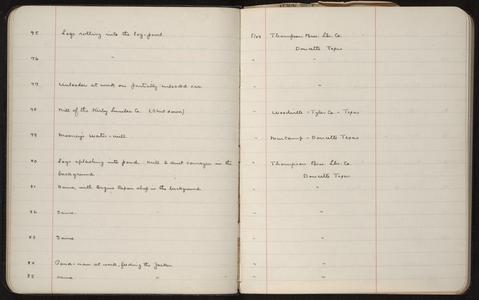 75 Logs rolling into the log-pond. 5/08 Thompson Bros. Lbr. Co.
Doucette Texas
76 " " "
77 Unloader at work on partially unloaded car " "
78 Mill of the Kirby Lumber Co. (Shut down) " Woodville - Tyler Co - Texas
79 Mooney's Water-mill " - Doucette Texas
80 Logs splashing into pond. Mill & dust conveyor in the " Thompson Bros. Lbr. Co.
background Doucette Texas
81 Same, with repair shop in the background " "
82 Same " "
83 Same " "
84 Pond-man at work, feeding the "
85 Same " " "